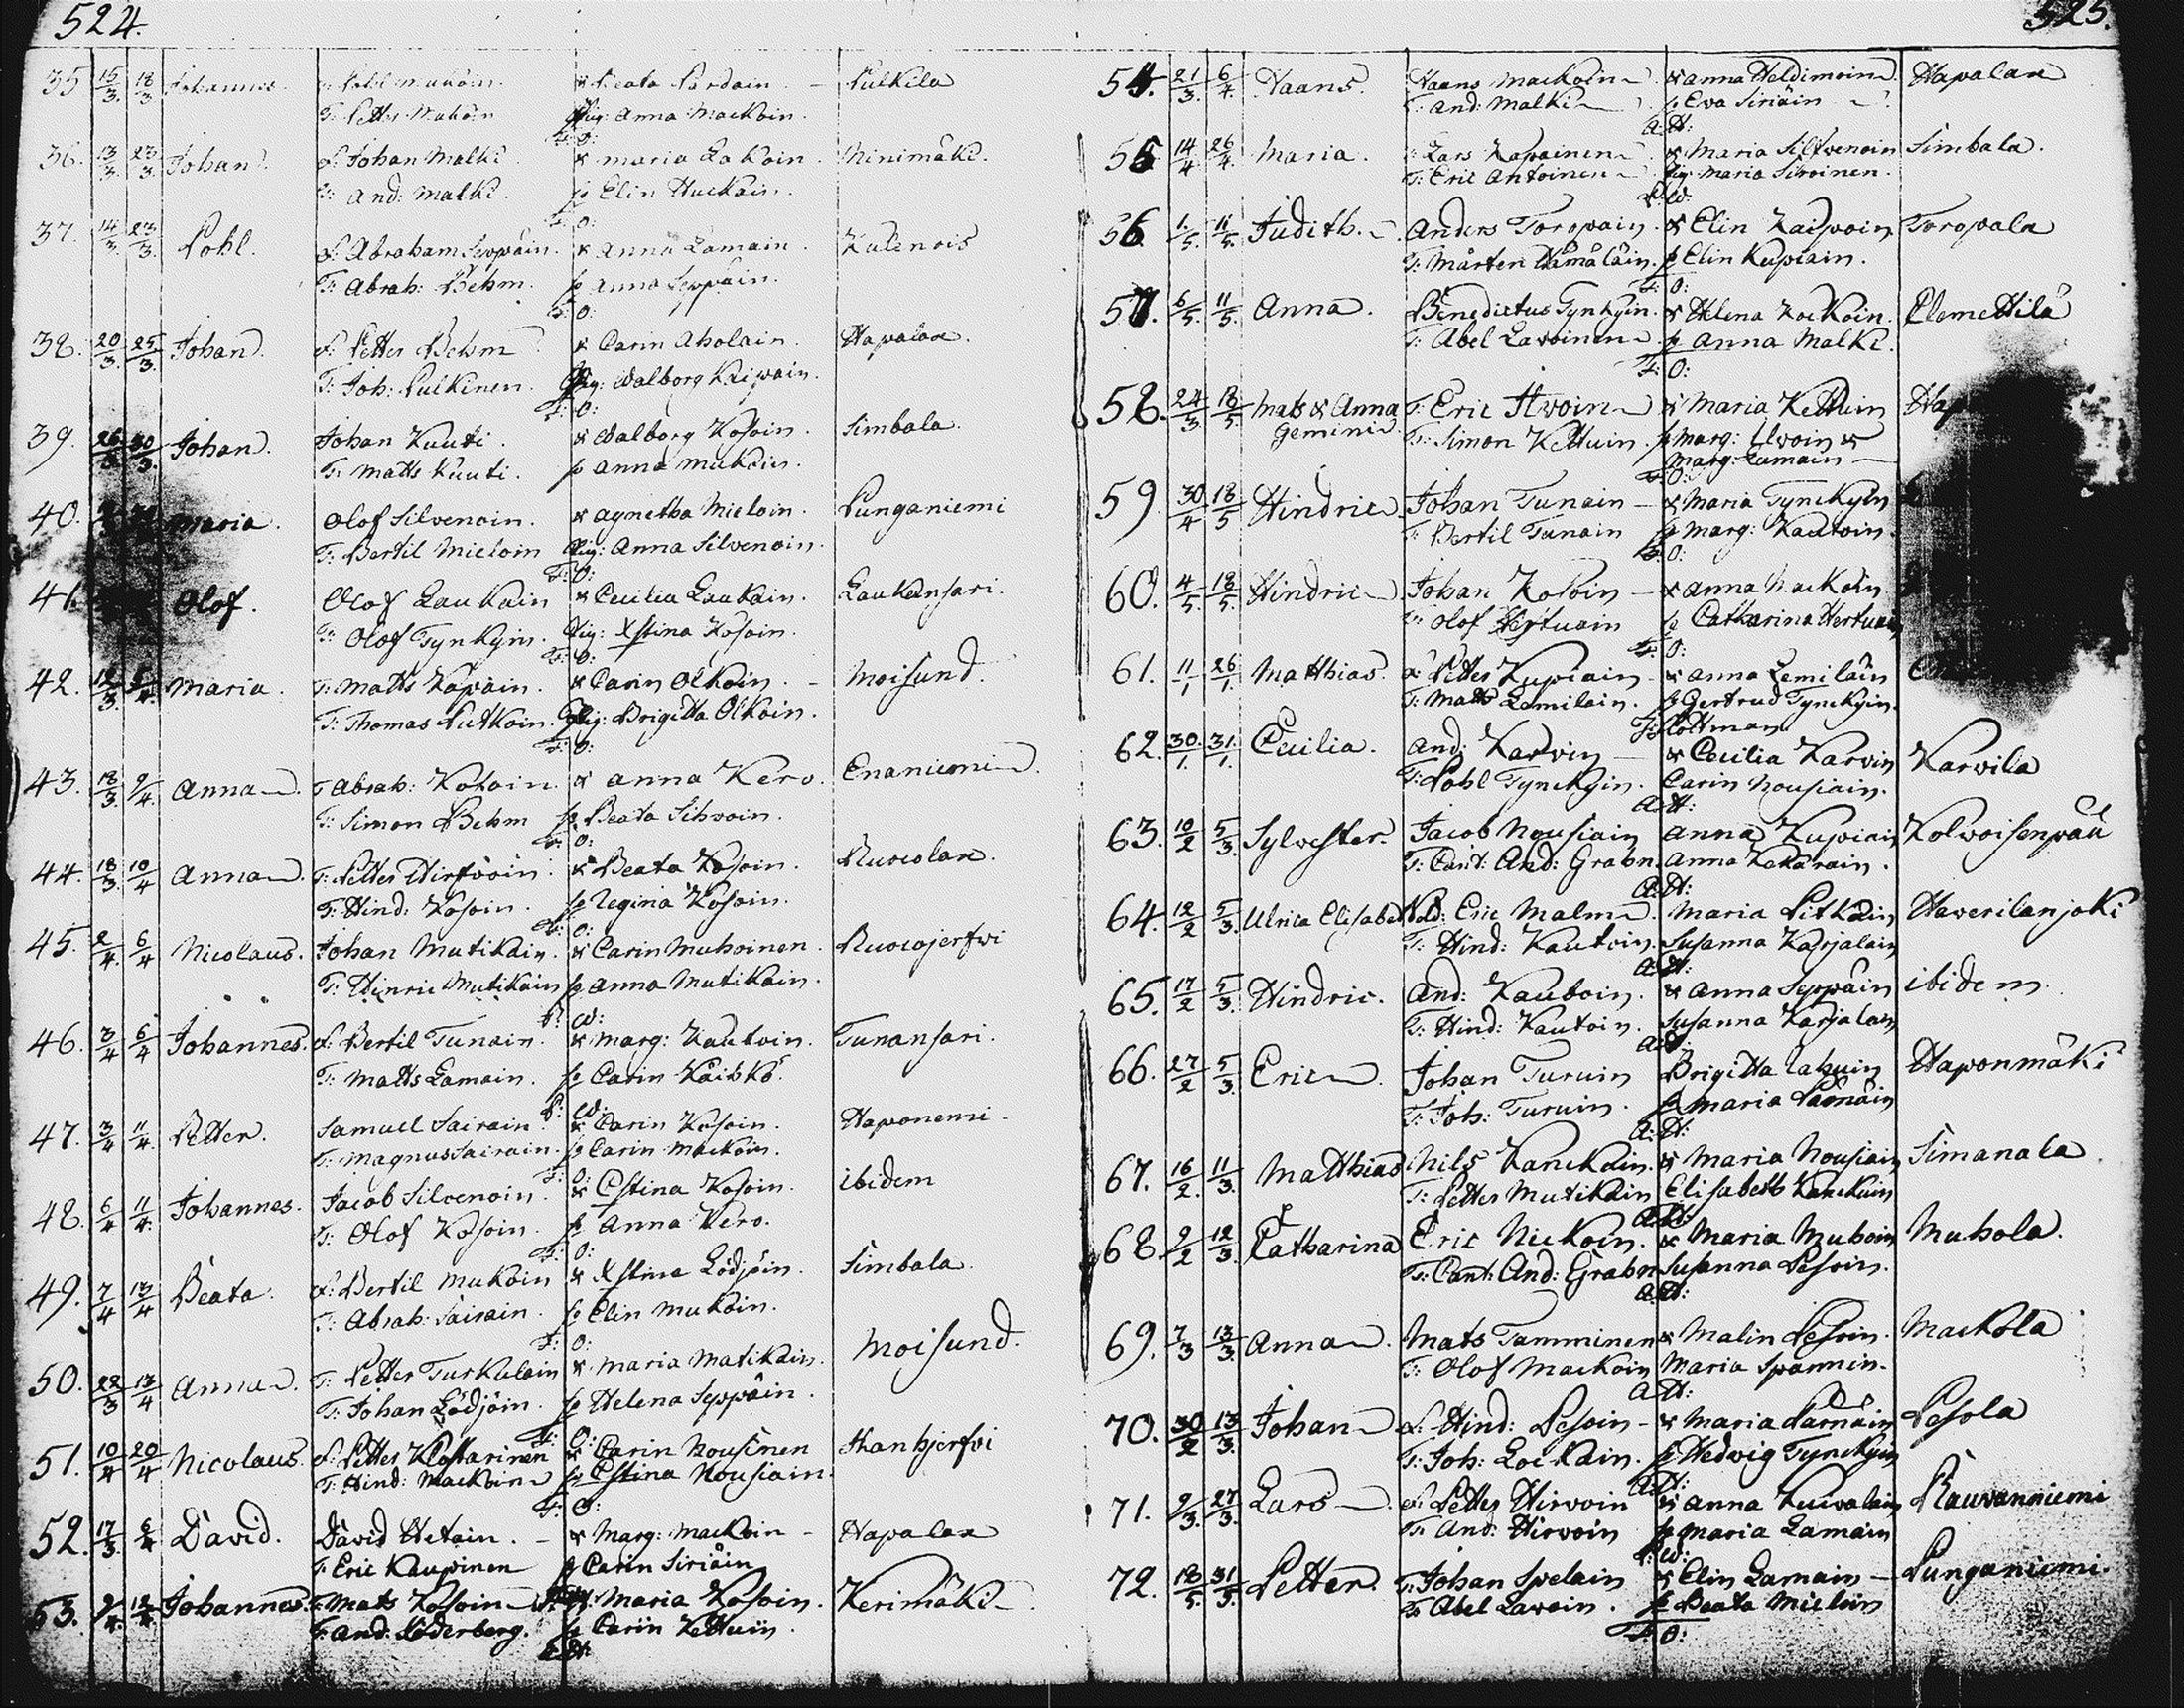 524.
35 15/3. 18/3 Johannes. Pohl Mukoin. & Beata Pardain. - Pulkila
T: Petter Mukoin Pig: Anna Mackoin.
F: O:
36. 13/3. 23/3. Johan. S. Johan Malki & Maria Lakoin. Ninimäki.
T: And: Malki. p Elin Huckain.
F: O:
37. 14/3. 23/3. Pohl. S. Abraham Seppäin. & Anna Lamain. Kulenois
T: Abrah: Behm. p Anna Seppäin.
F: O:
38. 20/3. 25/3. Johan. S. Petter Behm & Carin Aholain. Hapalax.
T: Joh: Pulkinen. Pig: Walborg Kaipain.
F: O:
39. 30/3. Johan. Johan Kuuti. & Walborg Kosoin. Simbala.
T: Matts Kuuti. p Anna Mukoin.
40. Maria. Olof Silvenoin. & Agnetha Mieloin. Punganiemi
T: Bertil Mieloin Pig: Anna Silvenoin.
F: O:
41. Olof. Olof Laukain & Cecilia Laukain. Laukansari.
T: Olof Tynkyin. Pig: Xstina Kosoin.
F: O:
42. 12/3. Maria. T: Matts Kapain. & Carin Olkoin. - Moisund.
T: Thomas Putkoin. Pig: Brigitta Olkoin.
F: O:
43. 18/3. 9/4. Anna. T Abrah: Kokoin. & Anna Kero. Enaniemi.
T: Simon Behm p Beata Sihvoin.
F: O:
44. 18/3. 10/4 Anna. T: Petter Hirfvoin. & Beata Kosoin. Ruocolax.
T: Hind: Kosoin. p Regina Kosoin.
F: O:
45. 2/4. 6/4 Nicolaus. Johan Mutikain. & Carin Muhoinen. Ruocojerfvi
T: Hinric Mutikain p Anna Mutikain.
P: W:
46. 3/4 6/4 Johannes. S. Bertil Tunain. & Marg: Kautoin. Tunansari.
T: Matts Lamain. p Carin Kaisko.
P: W:
47. 3/4 11/4. Petter. Samuel Sairain. & Carin Kosoin. Haponemi.
T: Magnus Sairain. p Carin Mackoin.
F: O:
48. 6/4 11/4. Johannes. Jacob Silvenoin. & Cstina Kosoin. ibidem
T: Olof Kosoin. p Anna Kero.
F: O:
49. 7/4 13/4 Beata. S. Bertil Mukoin & Xstina Lödjöin. Simbala.
T: Abrah: Sairain. p Elin Mukoin.
F: O:
50. 28/3 13/4 Anna. T: Petter Turkulain & Maria Matikain. Moisund.
T: Johan Lödjöin. p Helena Seppäin.
F: O:
51. 10/4 20/4 Nicolaus. S. Petter Kostarinen & Carin Nousinen Hanhjerfvi
T: Hind: Mackoin p Cstina Nousiain.
F: O:
52. 17/3. 6/4 David. David Hetain. - & Marg: Mackoin - Hapalax
T: Eric Kaupinen p Carin Siriäin
53. 12/4. Johannes. T: Mats Kosoin & Maria Kosoin. Kerimäki
T: And: Söderberg. p Carin Kettuin.
525.
54. 21/3. 6/4. Haans. Haans Mackoin & Anna Heldimoin. Hapalax
T: And: Malki p Ewa Siriäin
A: H:
55. 14/4 26/4. Maria. Lars Kapainen & Maria Silfvenoin Simbala.
T: Eric Antoinen Pig: Maria Sivoinen.
P: W:
56 1./5. 11/5. Judith. Anders Toropain. & Elin Kaipoin Toropala
T: Mårten Hämäläin. p Elin Kupiain.
F: O:
57. 6/5. 11/5. Anna. Benedictus Tynkyin. & Helena Kockoin. Clemettilä
T: Abel Lavoinen p Anna Malki.
F: O:
58. 24/3 18/5. Mats & Anna T: Eric Hvoin & Maria Kettuin
Gemini. T: Simon Kettuin. p Marg: Uvoin &
Marg: Lamain —
F: O:
59. 30/4 18/5 Hindric. Johan Tunain - & Maria Tynckyin
T: Bertil Tunain p Marg: Kautoin.
F: O:
60. 4/5. 18/5. Hindric Johan Kosoin — & Anna Mackoin
T: Olof Hertuain p Catharina Hertuain
F: O:
61. 11/1 26/1. Matthias. S. Petter Kupiain - & Anna Lemiläin
T: Matts Lemilain. p Gertrud Tynckyin.
F: Poltman.
62. 30./1. 31./1. Cecilia. And: Karvin — & Cecilia Karvin Karvila
T: Pohl Tynckyin. Carin Nousiain.
A: H:
63. 10/2 5/3. Sylvester. Jacob Nousiain Anna Kupiain Kolvoisenpää
T: Cant: And: Grahn. Anna Kekärain.
A: H:
64. 12/2 5/3. Ulrica Elisabet Sold: Eric Malm. Maria Pitkäin Haverilanjoki
T: Hind: Kautoin. Susanna Karjalain
A: H:
65. 17/2 5/3. Hindric. And: Kautoin. & Anna Seppäin ibidem.
T: Hind: Kautoin. Susanna Karjalain
A: H:
66. 27/2 5/3. Eric. Johan Turuin Brigitta Lahuin Haponmäki
T: Joh: Turuin. p Maria Parnäin
A: H:
67. 16/2. 11/3. Matthias Nils Kanckain. & Maria Nousiain Simanala
T: Petter Mutikain Elisabeth Kanckain
A: H:
68. 9/2 12/3. Catharina Eric Nickoin. & Maria Muhoin Muhola.
T: Cant: And: Grahn Susanna Pesoin.
A: H:
69. 7/3 13/3. Anna. Mats Tamminen & Malin Pesoin. Mackola
T: Olof Mackoin Maria Spannin.
A: H:
70. 30/2 13/3. Johan S. Hind: Pesoin - & Maria Parnäin Pesola
T: Joh: Lockain. p Hedwig Tynckyin
A: H:
71. 9/3. 27/3. Lars. S. Petter Hirvoin & Anna Kuivalain Rauvanniemi
T: And: Hirvoin p Maria Lamain
P: W:
72. 18/5. 31/5. Petter. T: Johan Spelain & Elin Lamain — Punganiemi.
T: Abel Lavoin. p Beata Mieloin
F: O: